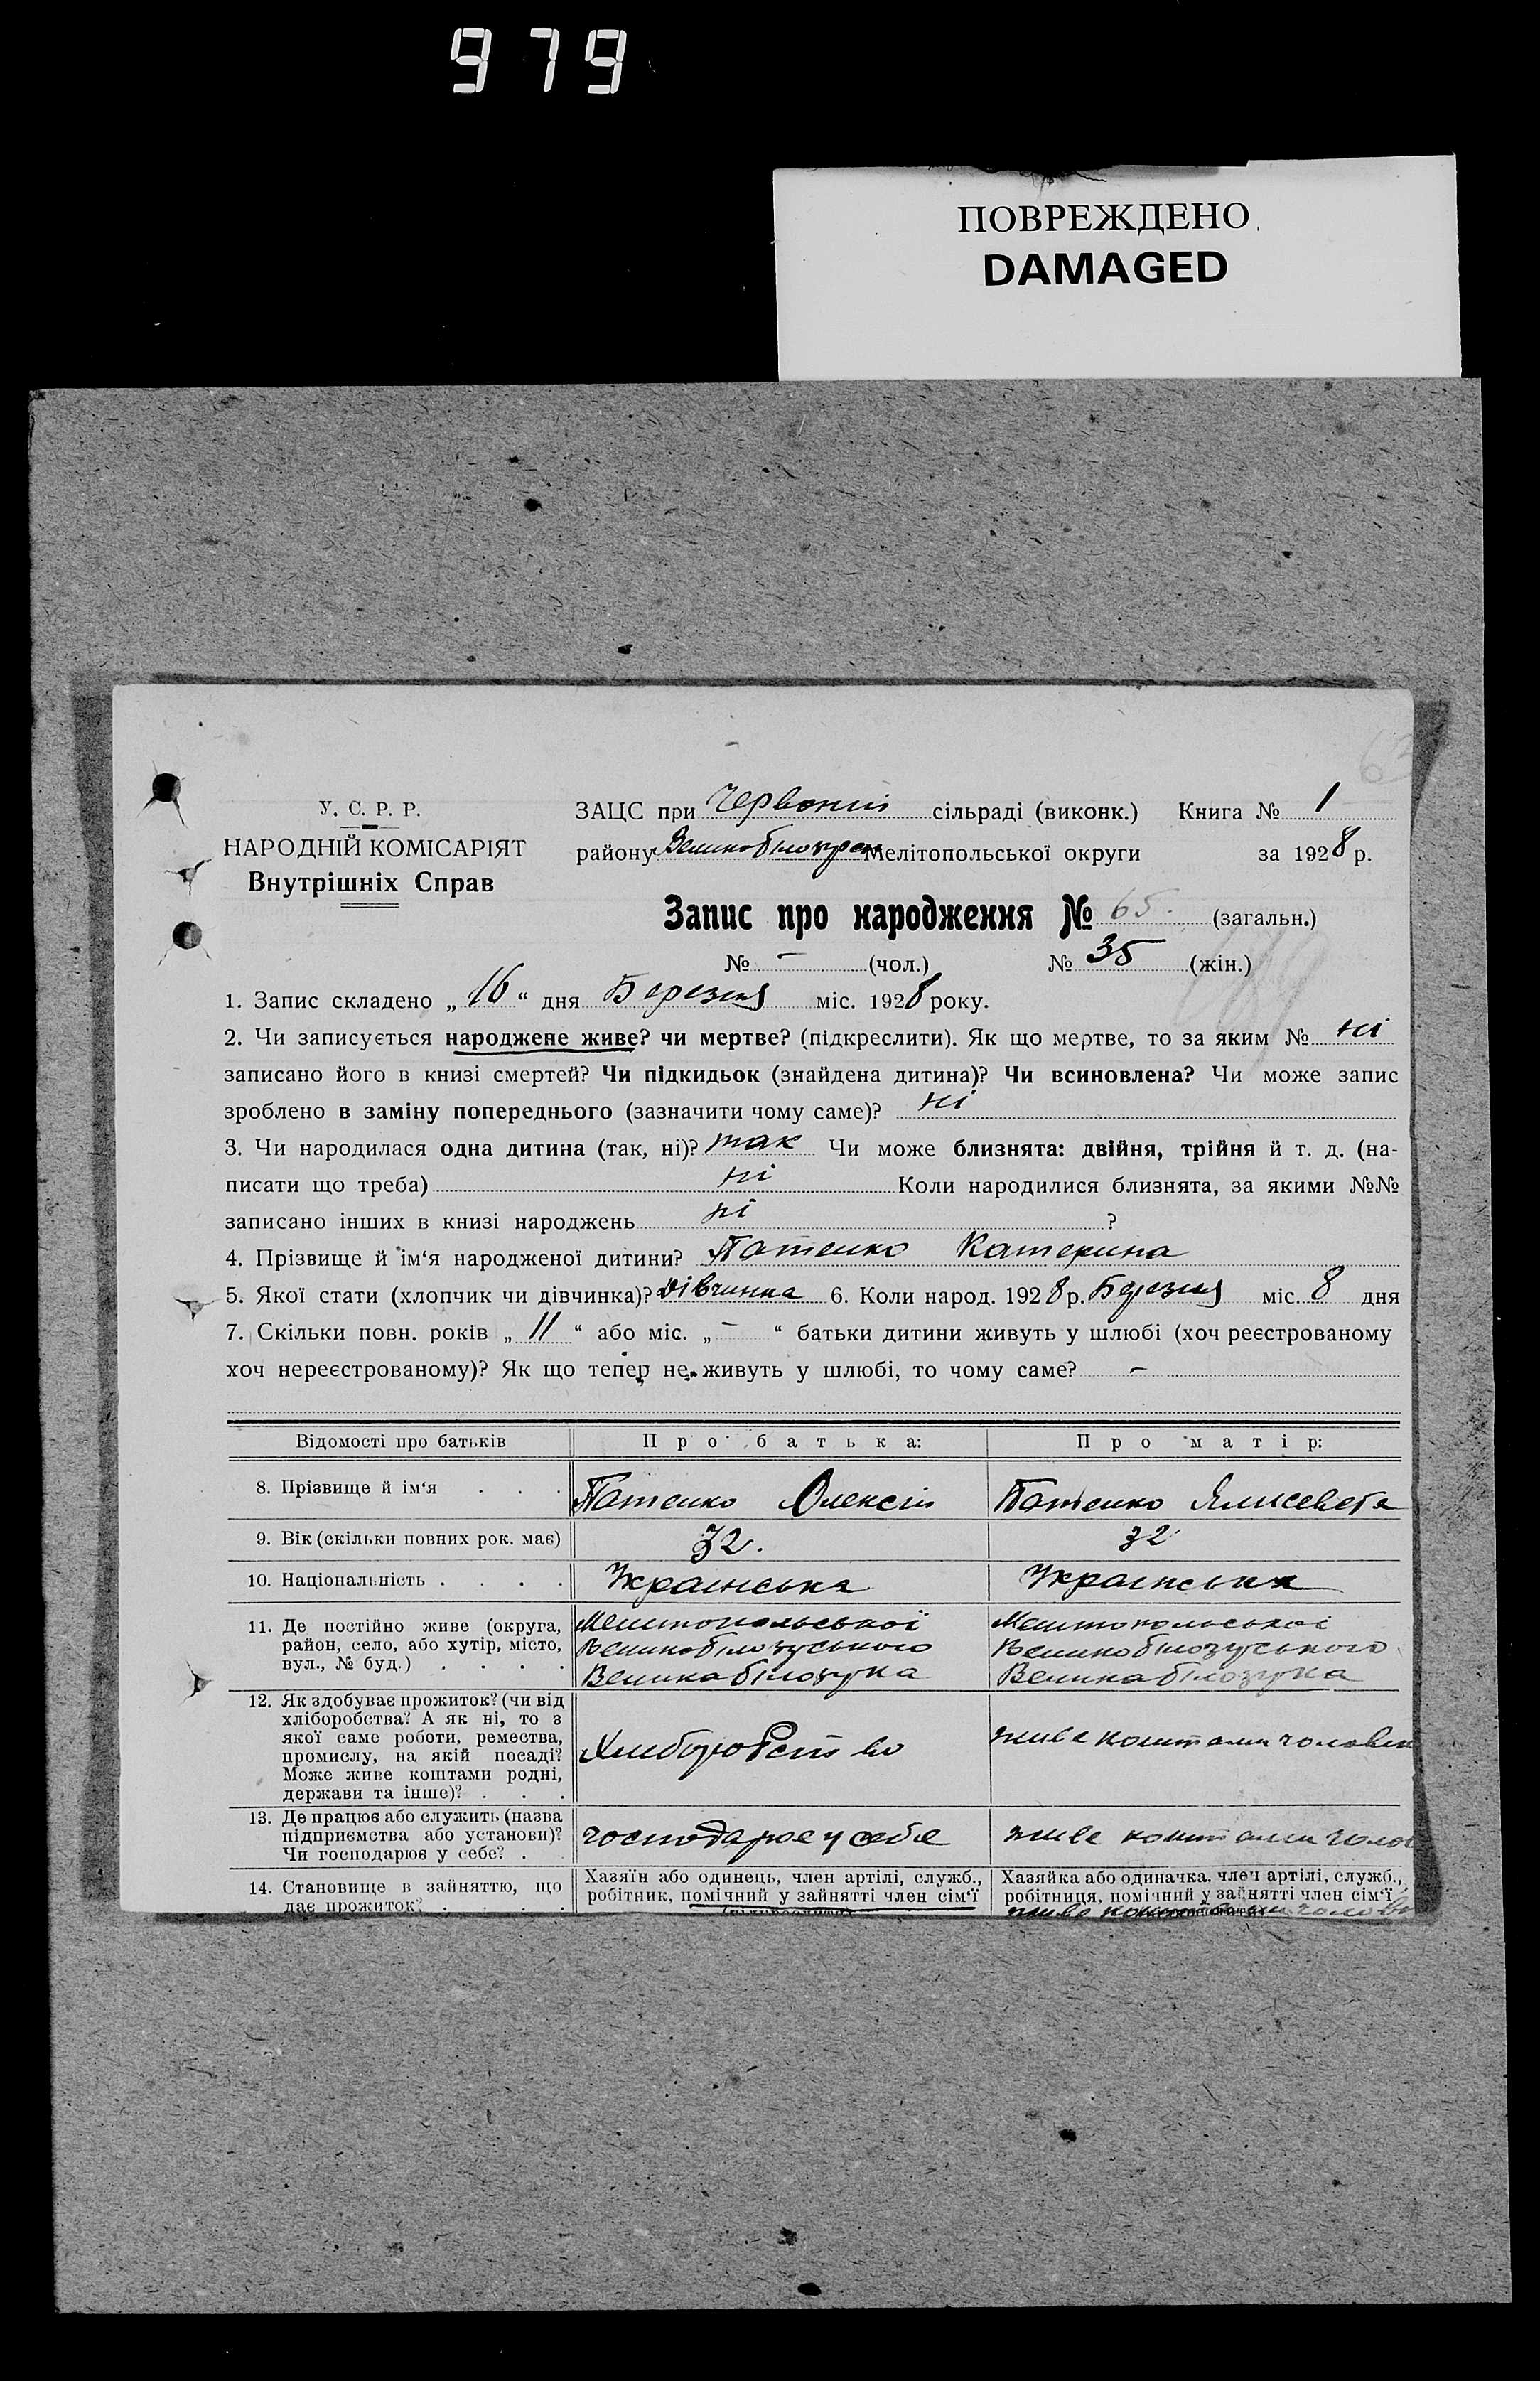 979
ПОВРЕЖДЕНО
DAMAGED
У. С. Р. Р.
НАРОДНІЙ КОМІСАРІЯТ
Внутрішніх Справ
ЗАЦС при Червоній сільраді (виконк.) Книга № 1
району Великобілозірск Мелітопольської округи за 1928 р.
Запис про народження № 65. (загальн.)
№ - (чол.) № 35 (жін.)
1. Запис складено „16“ дня Березня міс. 1928 року.
2. Чи записується народжене живе? чи мертве? (підкреслити). Як що мертве, то за яким № ні
записано його в книзі смертей? Чи підкидьок (знайдена дитина)? Чи всиновлена? Чи може запис
зроблено в заміну попереднього (зазначити чому саме)? ні
3. Чи народилася одна дитина (так, ні)? так Чи може близнята: двійня, трійня й т. д. (на-
писати що треба) ні Коли народилися близнята, за якими №№
записано інших в книзі народжень ні ?
4. Прізвище й ім‘я народженої дитини? Патенко Катерина
5. Якої стати (хлопчик чи дівчинка)? дівчинка 6. Коли народ. 1928 р. Березня міс. 8 дня
7. Скільки повн. років „11“ або міс. „-“ батьки дитини живуть у шлюбі (хоч реєстрованому
хоч нереєстрованому)? Як що тепер не живуть у шлюбі, то чому саме? -
Відомості про батьків Про батька: Про матір:
8. Прізвище й ім‘я . . . Патенко Олексій Патенко Ялисевета
9. Вік (скільки повних рок. має) 32. 32
10. Національність . . . . Українська Українська
11. Де постійно живе (округа,
район, село, або хутір, місто,
вул., № буд.) . . . .
Мелитопольської
Великобілозуського
Великабілозурка
Мелитопольської
Великобілозуського
Великабілозурка
12. Як здобуває прожиток? (чи від
хліборобства? А як ні, то з
якої саме роботи, ремества,
промислу, на якій посаді?
Може живе коштами родні,
держави та інше)? . . .
Хлиборобство
живе коштами чоловік
13. Де працює або служить (назва
підприємства або установи)?
Чи господарює у себе? .
господарює у себе
живе коштами чолов
14. Становище в зайняттю, що
дає прожиток? . . . .
Хазяїн або одинець, член артілі, служб.,
робітник, помічний у зайнятті член сім‘ї
Хазяйка або одиначка, член артілі, служб.,
робітниця, помічний у зайнятті член сім‘ї
живе коштами чолов